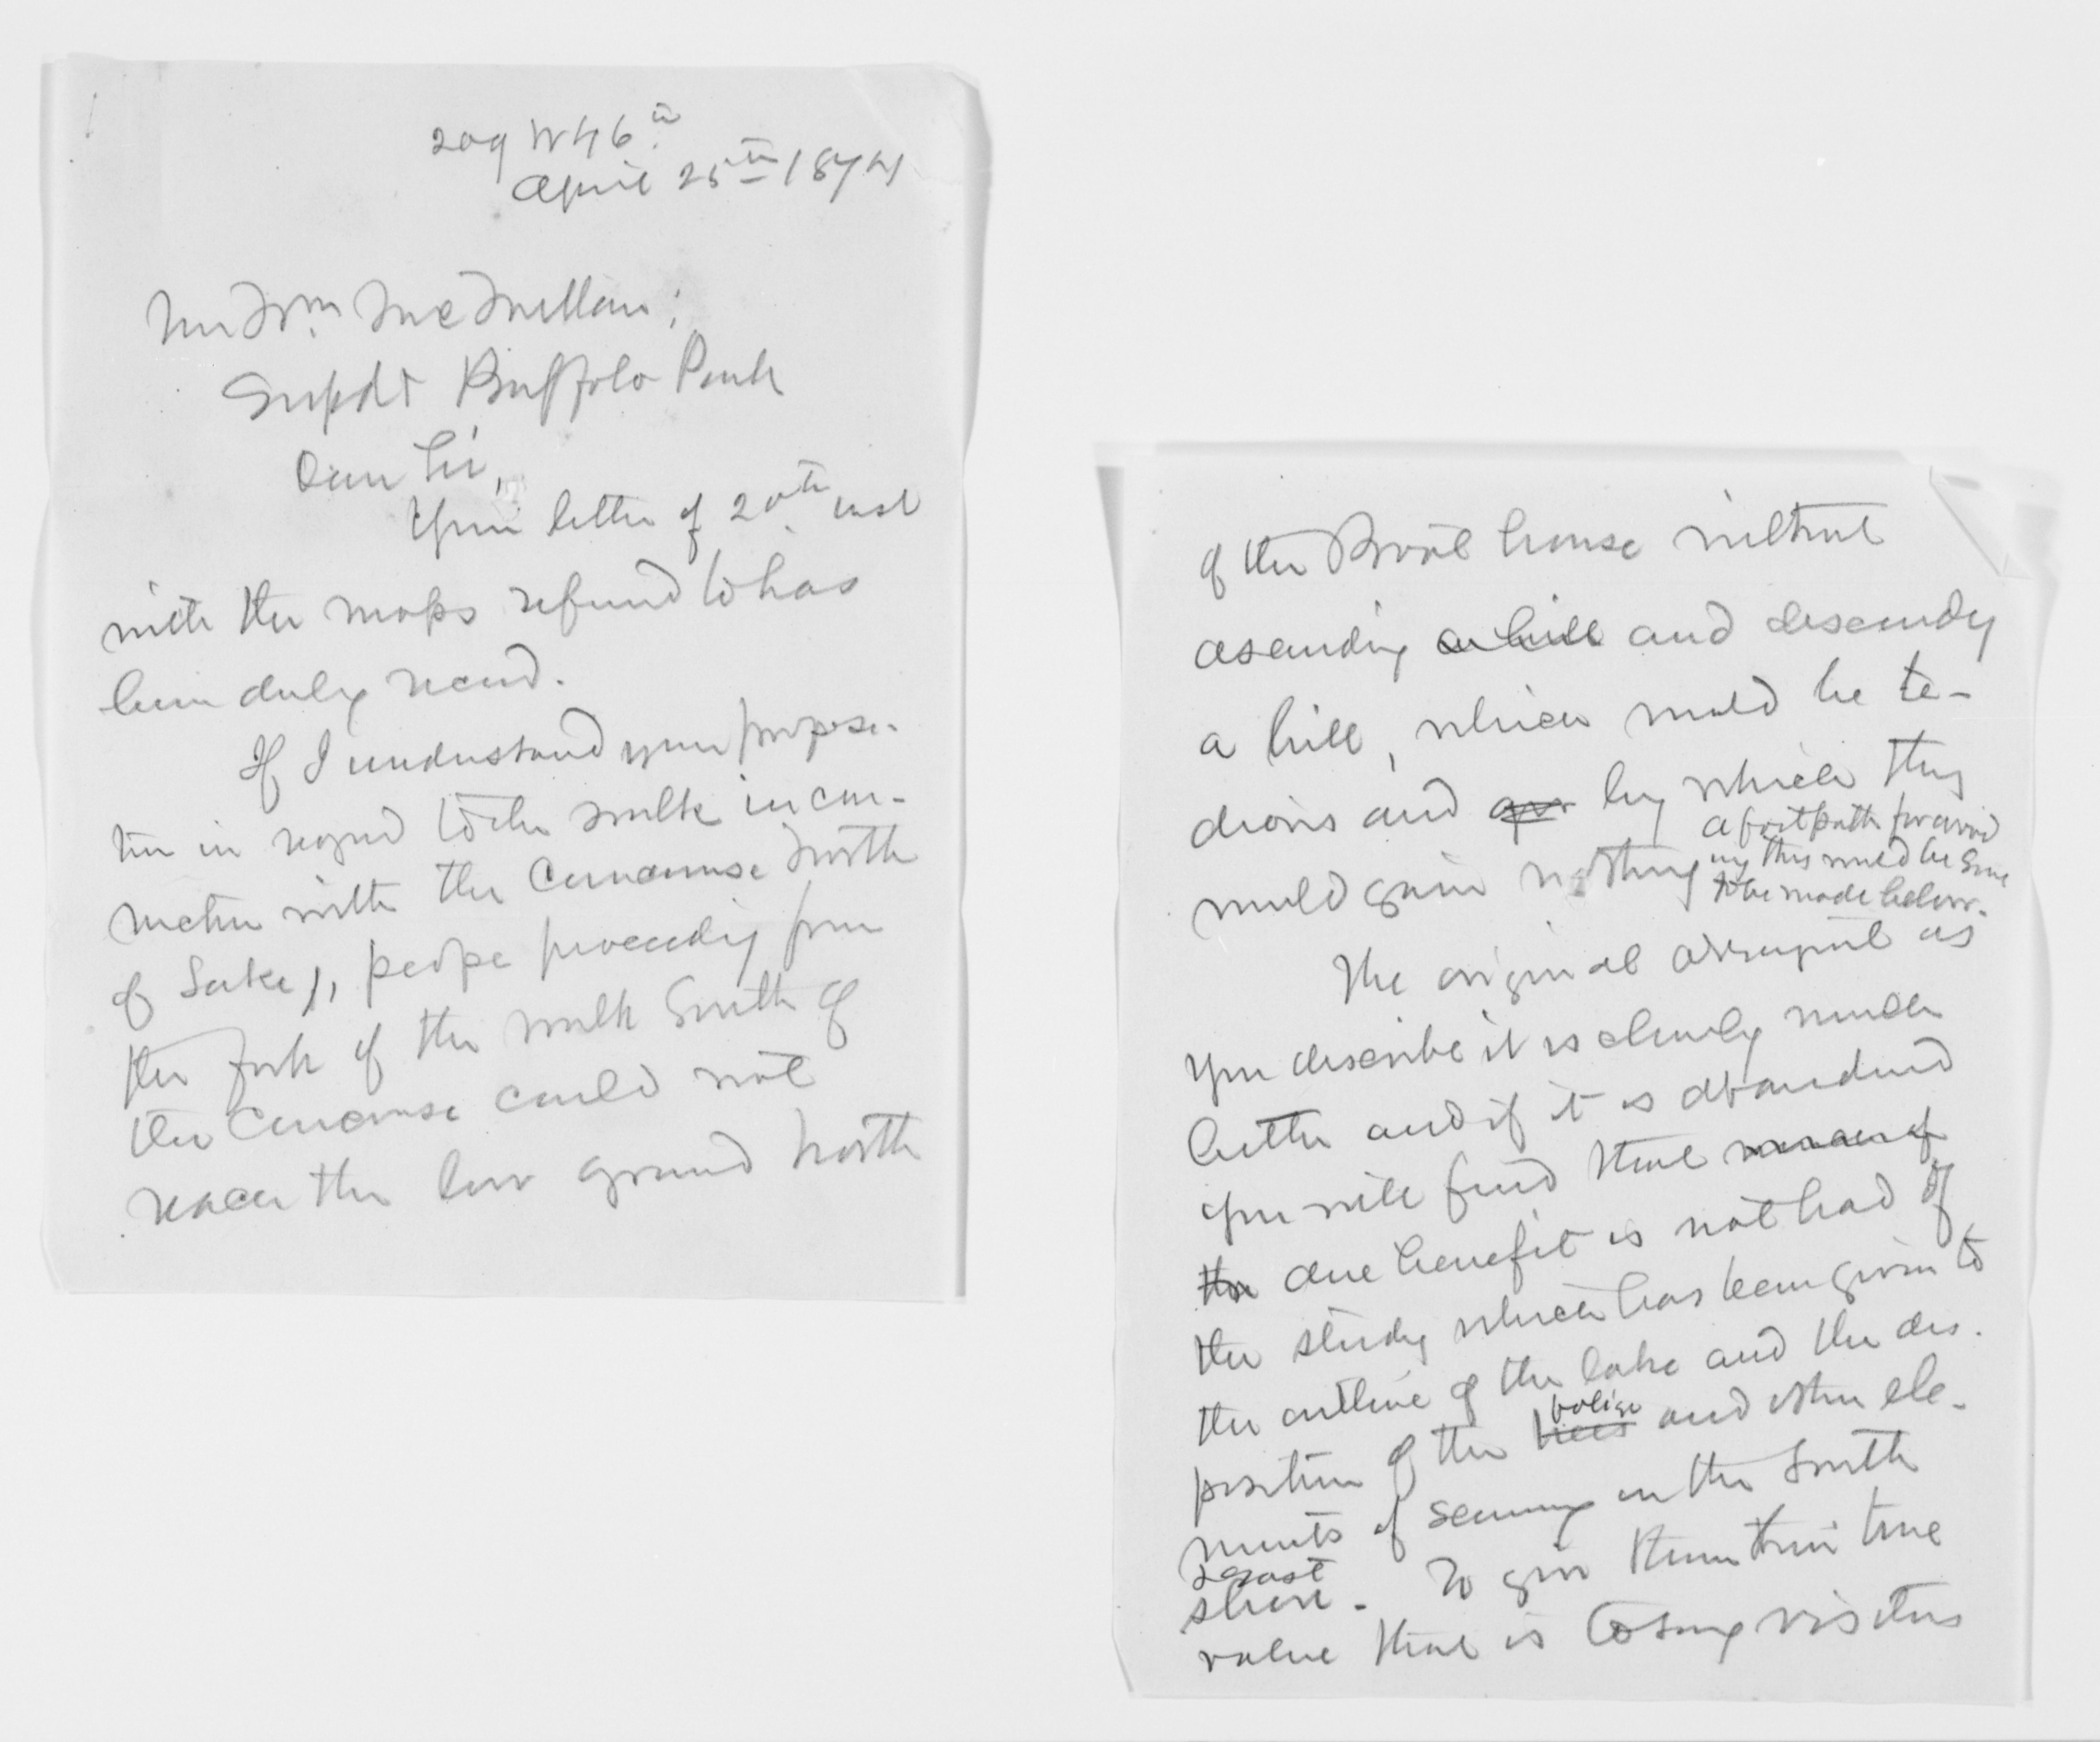 209 W 46th
April 25th 1874
Mr Wm McMillan;
Supdt Buffalo Park
Dear Sir,
Your letter of 20th inst
with the maps referred to has
been duly recevd.
If I understand your proposi-
tion in regard to the walk in con-
nection with the Concourse North
of Lake, people proceeding from
the fork of the walk South of
the Concourse could not
reach the low ground North
of the Boat house without
ascending a hill and descending
a hill, which would be te-
dious and by which they
would gain nothing
a footpath for avoid
ing this would be sure
to be made below.
The original arrangmt as
you describe it is clearly much
better and if it is abandoned
you will find that
the due benefit is not had of
the study which has been given to
the outline of the lake and the dis-
position of the trees foliage and other ele-
ments of scenery on the South
coast
shore. To give them their true
value that is to say visitors